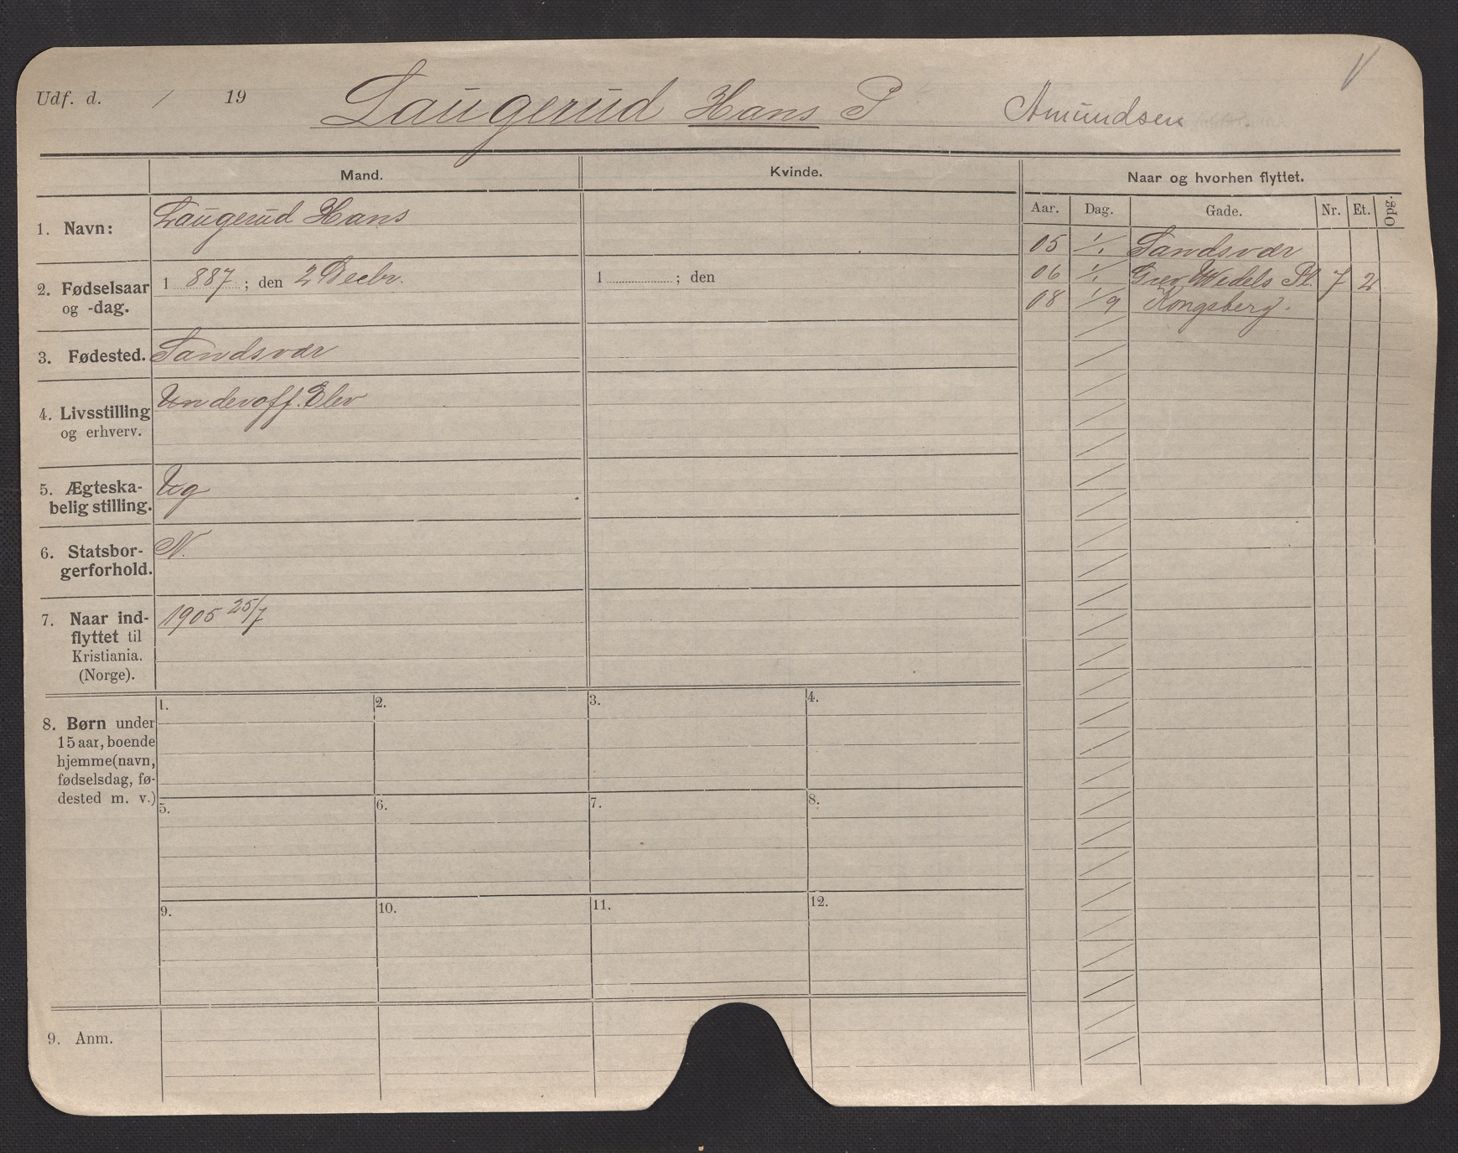 Udf. d. / 19 Laugerud Hans P Amundsen
Mand. Kvinde. Naar og hvorhen flyttet.
Aar. Dag. Gade. Nr. Et. Opg.
1. Navn: Laugerud Hans
05 1/1 Sandsvær
2. Fødselsaar og -dag. 1 887 ; den 2 Decbr. 1 ; den
06 1/1 Grev Wedels Pl. 7 2
08 1/9 Kongsberg.
3. Fødested. Sandsvær
4. Livsstilling og erhverv. Underoff. Elev
5. Ægteska-
belig stilling. Ug
6. Statsbor-
gerforhold. N.
7. Naar ind-
flyttet til
Kristiania.
(Norge). 1905 25/7
8. Børn under
15 aar, boende
hjemme (navn,
fødselsdag, fø-
dested m. v.)
1. 2. 3. 4.
5. 6. 7. 8.
9. 10. 11. 12.
9. Anm.